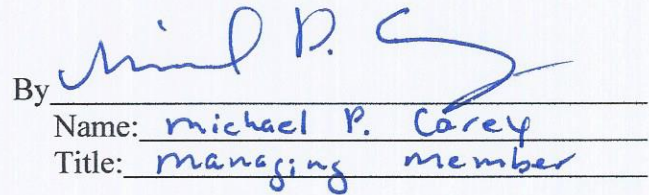 By Michael P. Carey
Name: Michael P. Carey
Title: Managing Member